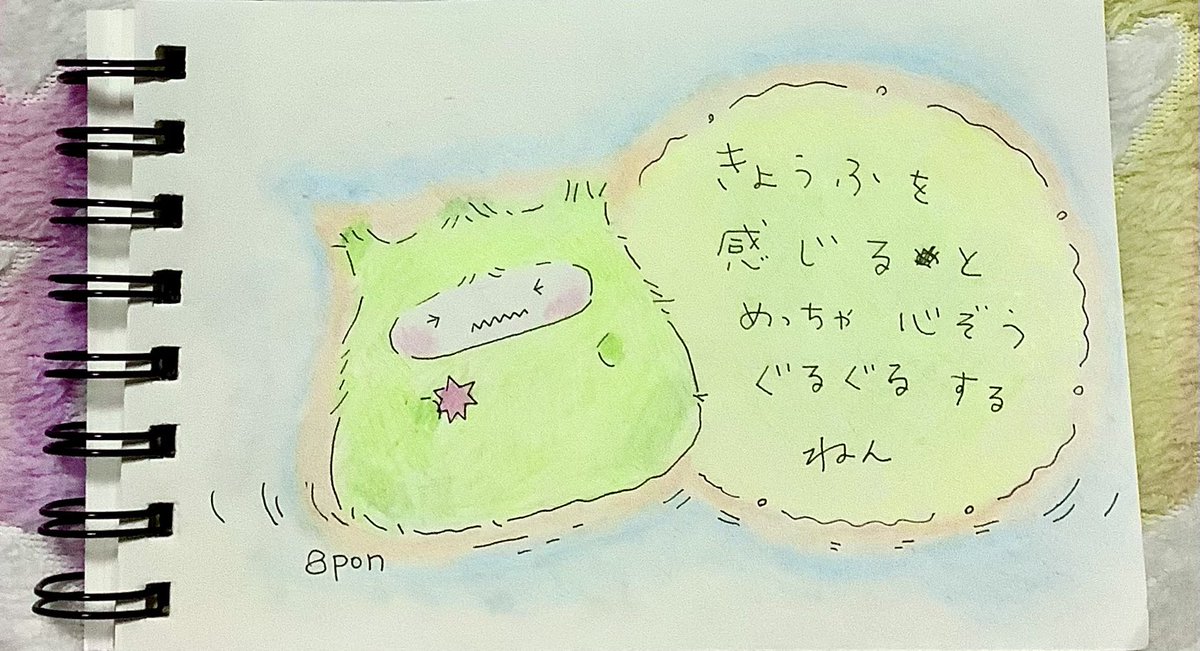 きょうふを
感じると
めっちゃ 心ぞう
ぐるぐる する
ねん
8pon